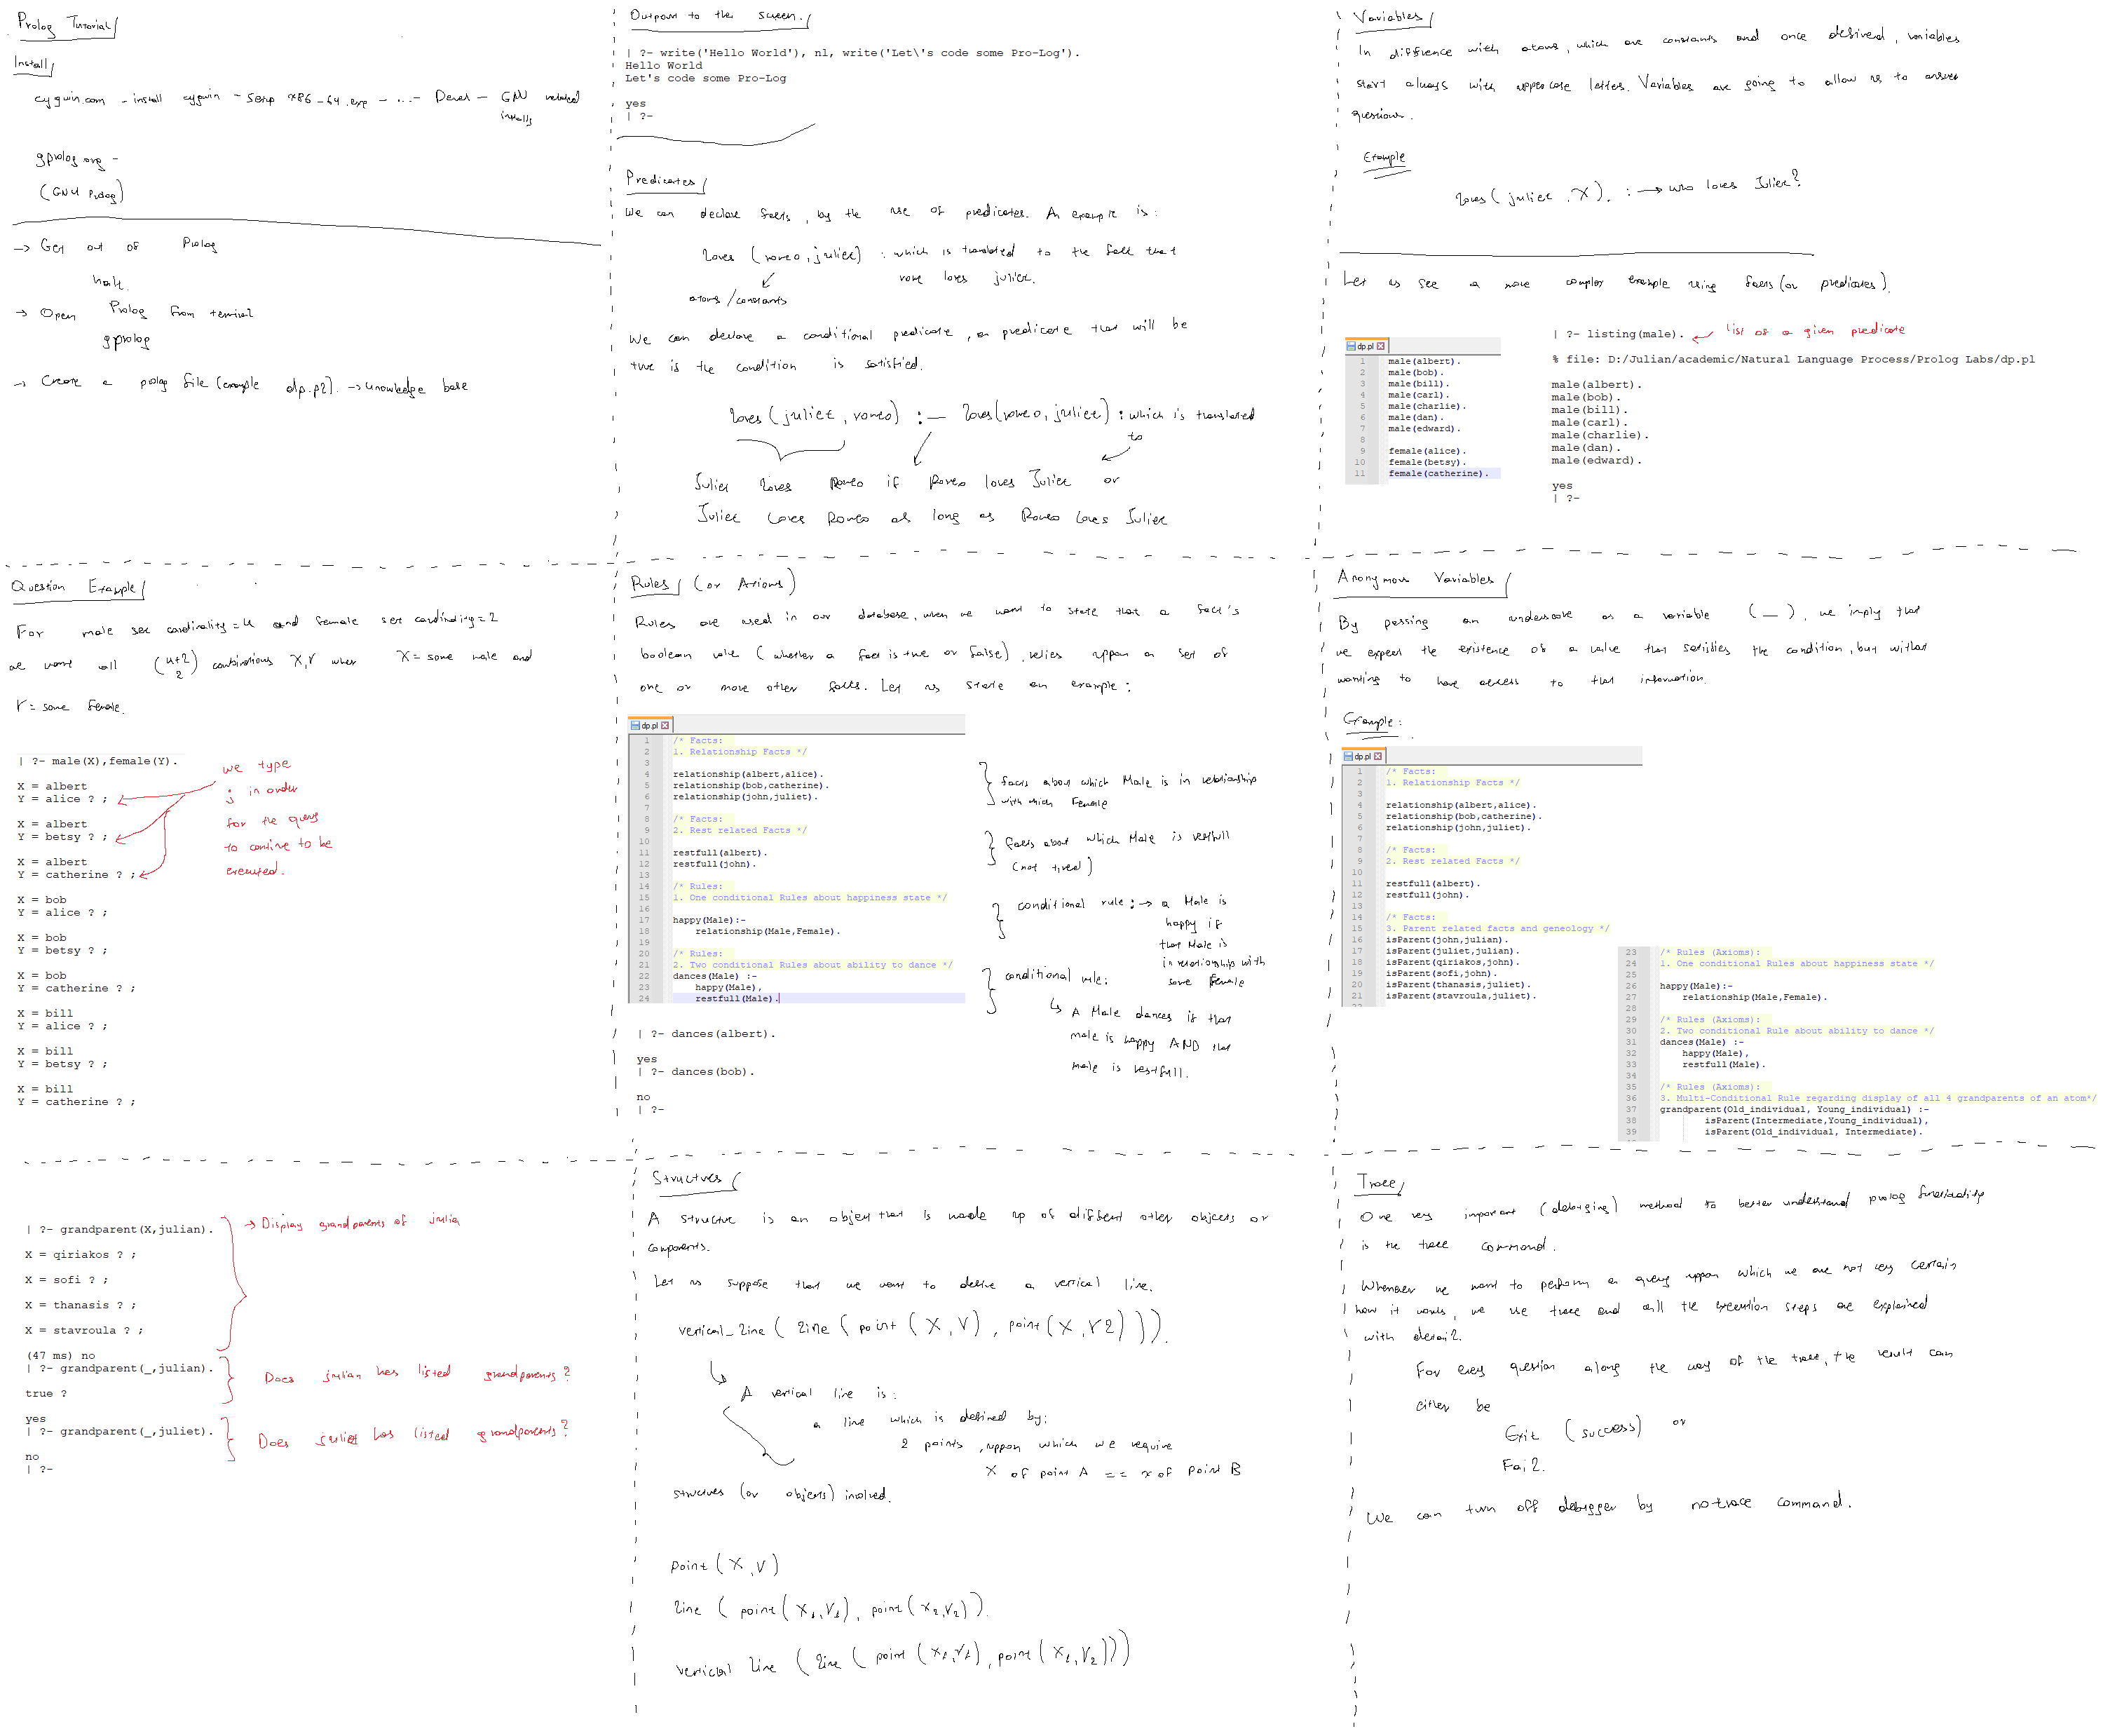 Prolog Tutorial
Install
cygwin.com - install cygwin - setup x86-64.exe - ... - Devel - GNU related
installs
gprolog.org -
(GNU Prolog)
-> Get out of Prolog
halt.
-> Open Prolog from terminal
gprolog
-> Create a prolog file (example dp.pl). -> knowledge base
Output to the screen.
| ?- write('Hello World'), nl, write('Let\'s code some Pro-Log').
Hello World
Let's code some Pro-Log
yes
| ?-
Predicates
We can declare facts, by the use of predicates. An example is:
loves (romeo, juliet) : which is translated to the fact that
rome loves juliet.
atoms / constants
We can declare a conditional predicate, a predicate that will be
true is the condition is satisfied.
loves (juliet, romeo) :- loves (romeo, juliet) : which is translated
to
Juliet loves Romeo if Romeo loves Juliet or
Juliet loves Romeo as long as Romeo loves Juliet
Variables
In difference with atoms, which are constants and once desired, variables
start always with uppercase letters. Variables are going to allow us to answer
questions.
Example
loves (juliet, X). : -> who loves Juliet?
Let us see a more complex example using facts (or predicates).
dp.pl
1 male(albert).
2 male(bob).
3 male(bill).
4 male(carl).
5 male(charlie).
6 male(dan).
7 male(edward).
8
9 female(alice).
10 female(betsy).
11 female(catherine).
| ?- listing(male). list of a given predicate
% file: D:/Julian/academic/Natural Language Process/Prolog Labs/dp.pl
male(albert).
male(bob).
male(bill).
male(carl).
male(charlie).
male(dan).
male(edward).
yes
| ?-
Question Example
For male set cardinality = 4 and female set cardinality = 2
we want all (4+2 2) combinations X,Y when X = some male and
Y = some female.
| ?- male(X),female(Y).
X = albert
Y = alice ? ;
X = albert
Y = betsy ? ;
X = albert
Y = catherine ? ;
X = bob
Y = alice ? ;
X = bob
Y = betsy ? ;
X = bob
Y = catherine ? ;
X = bill
Y = alice ? ;
X = bill
Y = betsy ? ;
X = bill
Y = catherine ? ;
we type
; in order
for the query
to contine to be
executed.
Rules (or Axioms)
Rules are used in our database, when we want to state that a fact's
boolean value (whether a fact is true or false), relies uppon a set of
one or more other facts. Let us state an example:
dp.pl
1 /* Facts:
2 1. Relationship Facts */
3
4 relationship(albert,alice).
5 relationship(bob,catherine).
6 relationship(john,juliet).
7
8 /* Facts:
9 2. Rest related Facts */
10
11 restfull(albert).
12 restfull(john).
13
14 /* Rules:
15 1. One conditional Rules about happiness state */
16
17 happy(Male):-
18 relationship(Male,Female).
19
20 /* Rules:
21 2. Two conditional Rules about ability to dance */
22 dances(Male) :-
23 happy(Male),
24 restfull(Male).
facts about which Male is in relationship
with which Female
facts about which Male is restfull
(not tired)
conditional rule: -> a Male is
happy if
that Male is
in relationship with
some Female
conditional rule:
A Male dances if that
male is happy AND that
male is restfull.
| ?- dances(albert).
yes
| ?- dances(bob).
no
| ?-
Anonymous Variables
By passing an underscore as a variable (_), we imply that
we expect the existence of a value that satisfies the condition, but without
wanting to have access to that information.
Example:
dp.pl
1 /* Facts:
2 1. Relationship Facts */
3
4 relationship(albert,alice).
5 relationship(bob,catherine).
6 relationship(john,juliet).
7
8 /* Facts:
9 2. Rest related Facts */
10
11 restfull(albert).
12 restfull(john).
13
14 /* Facts:
15 3. Parent related facts and geneology */
16 isParent(john,julian).
17 isParent(juliet,julian).
18 isParent(qiriakos,john).
19 isParent(sofi,john).
20 isParent(thanasis,juliet).
21 isParent(stavroula,juliet).
23 /* Rules (Axioms):
24 1. One conditional Rules about happiness state */
25
26 happy(Male):-
27 relationship(Male,Female).
28
29 /* Rules (Axioms):
30 2. Two conditional Rule about ability to dance */
31 dances(Male) :-
32 happy(Male),
33 restfull(Male).
34
35 /* Rules (Axioms):
36 3. Multi-Conditional Rule regarding display of all 4 grandparents of an atom*/
37 grandparent(Old_individual, Young_individual) :-
38 isParent(Intermediate,Young_individual),
39 isParent(Old_individual, Intermediate).
| ?- grandparent(X,julian).
-> Display grandparents of julia
X = qiriakos ? ;
X = sofi ? ;
X = thanasis ? ;
X = stavroula ? ;
(47 ms) no
| ?- grandparent(_,julian).
Does julian has listed grandparents?
true ?
yes
| ?- grandparent(_,juliet).
Does juliet has listed grandparents?
no
| ?-
Structures
A structure is an object that is made up of different other objects or
components.
Let us suppose that we want to define a vertical line.
vertical_line ( line ( point ( X, Y ) , point ( X, Y2 ) ) ).
A vertical line is:
a line which is defined by:
2 points, uppon which we require
X of point A == x of Point B
structures (or objects) involved.
point ( X, Y )
line ( point ( X1, Y1 ), point ( X2, Y2 ) ).
vertical line ( line ( point ( X1, Y1 ), point ( X1, Y2 ) ) )
Trace
One very important (debugging) method to better understand prolog functionality
is the trace command.
Whenever we want to perform a query uppon which we are not very certain
how it works, we use trace and all the execution steps are explained
with detail.
For every question along the way of the trace, the result can
either be
Exit (success) or
Fail.
We can turn off debugger by notrace command.